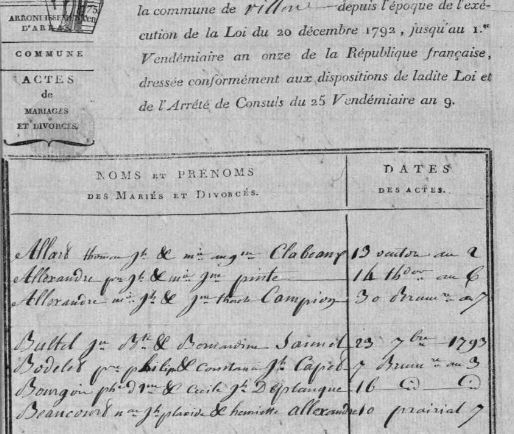 ARRONDISSEMENT
D'ARRAS
COMMUNE
ACTES
de
MARIAGES
ET DIVORCES,
la commune de depuis l'époque de l'exé-
cution de la Loi du 20 décembre 1792, jusqu'au 1.er
Vendémiaire an onze de la République française,
dressée conformément aux dispositions de ladite Loi et
de l'Arrêté de Consuls du 25 Vendémiaire an 9.
NOMS ET PRÉNOMS
DES MARIÉS ET DIVORCÉS.
DATES
DES ACTES.
Allart thomas jh & mie Clabeaux 13 ventou an 2
Allexandre & mie jne pinte 14 an 6
Allexandre jh & Campion 30 Brume a 7
Bultel & Bernardine 23 7bre 1793
Bodelet philip & constance jh Capet 7 Brume an 3
Bourgoin & Cecile jh Deplanque 16 C: C:
Beaucourt jh placide & henriette allexandre 10 prairial 7